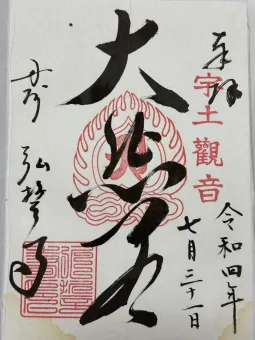 奉拝
宇土觀音
令和四年
七月三十一日
大悲殿
弘誓寺